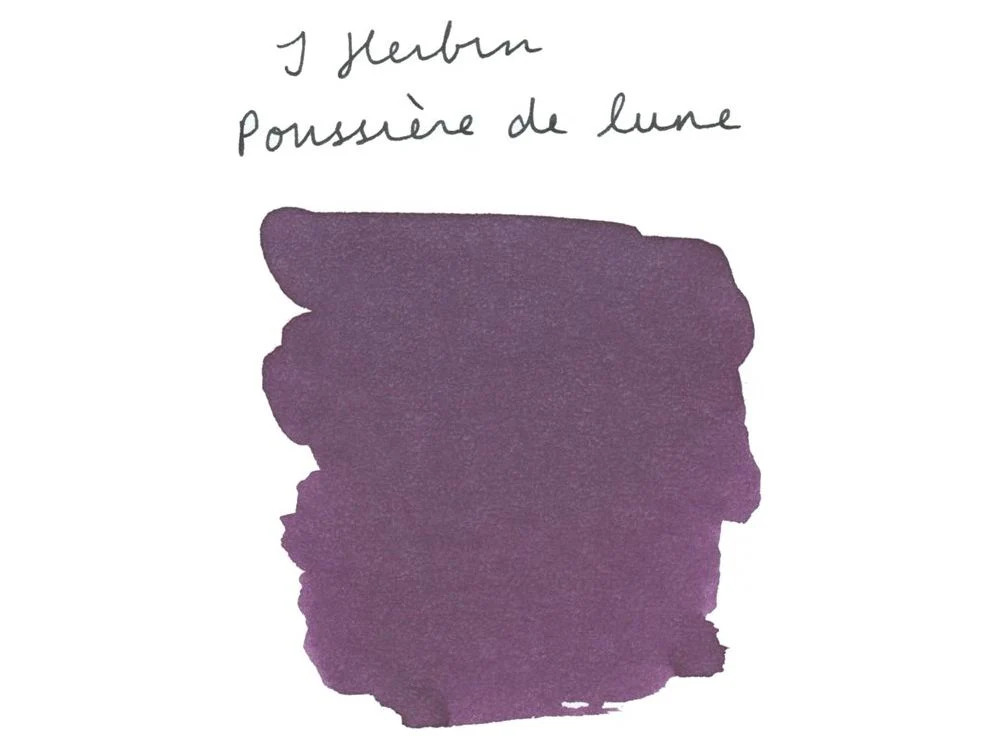 J Herbin
Poussière de lune